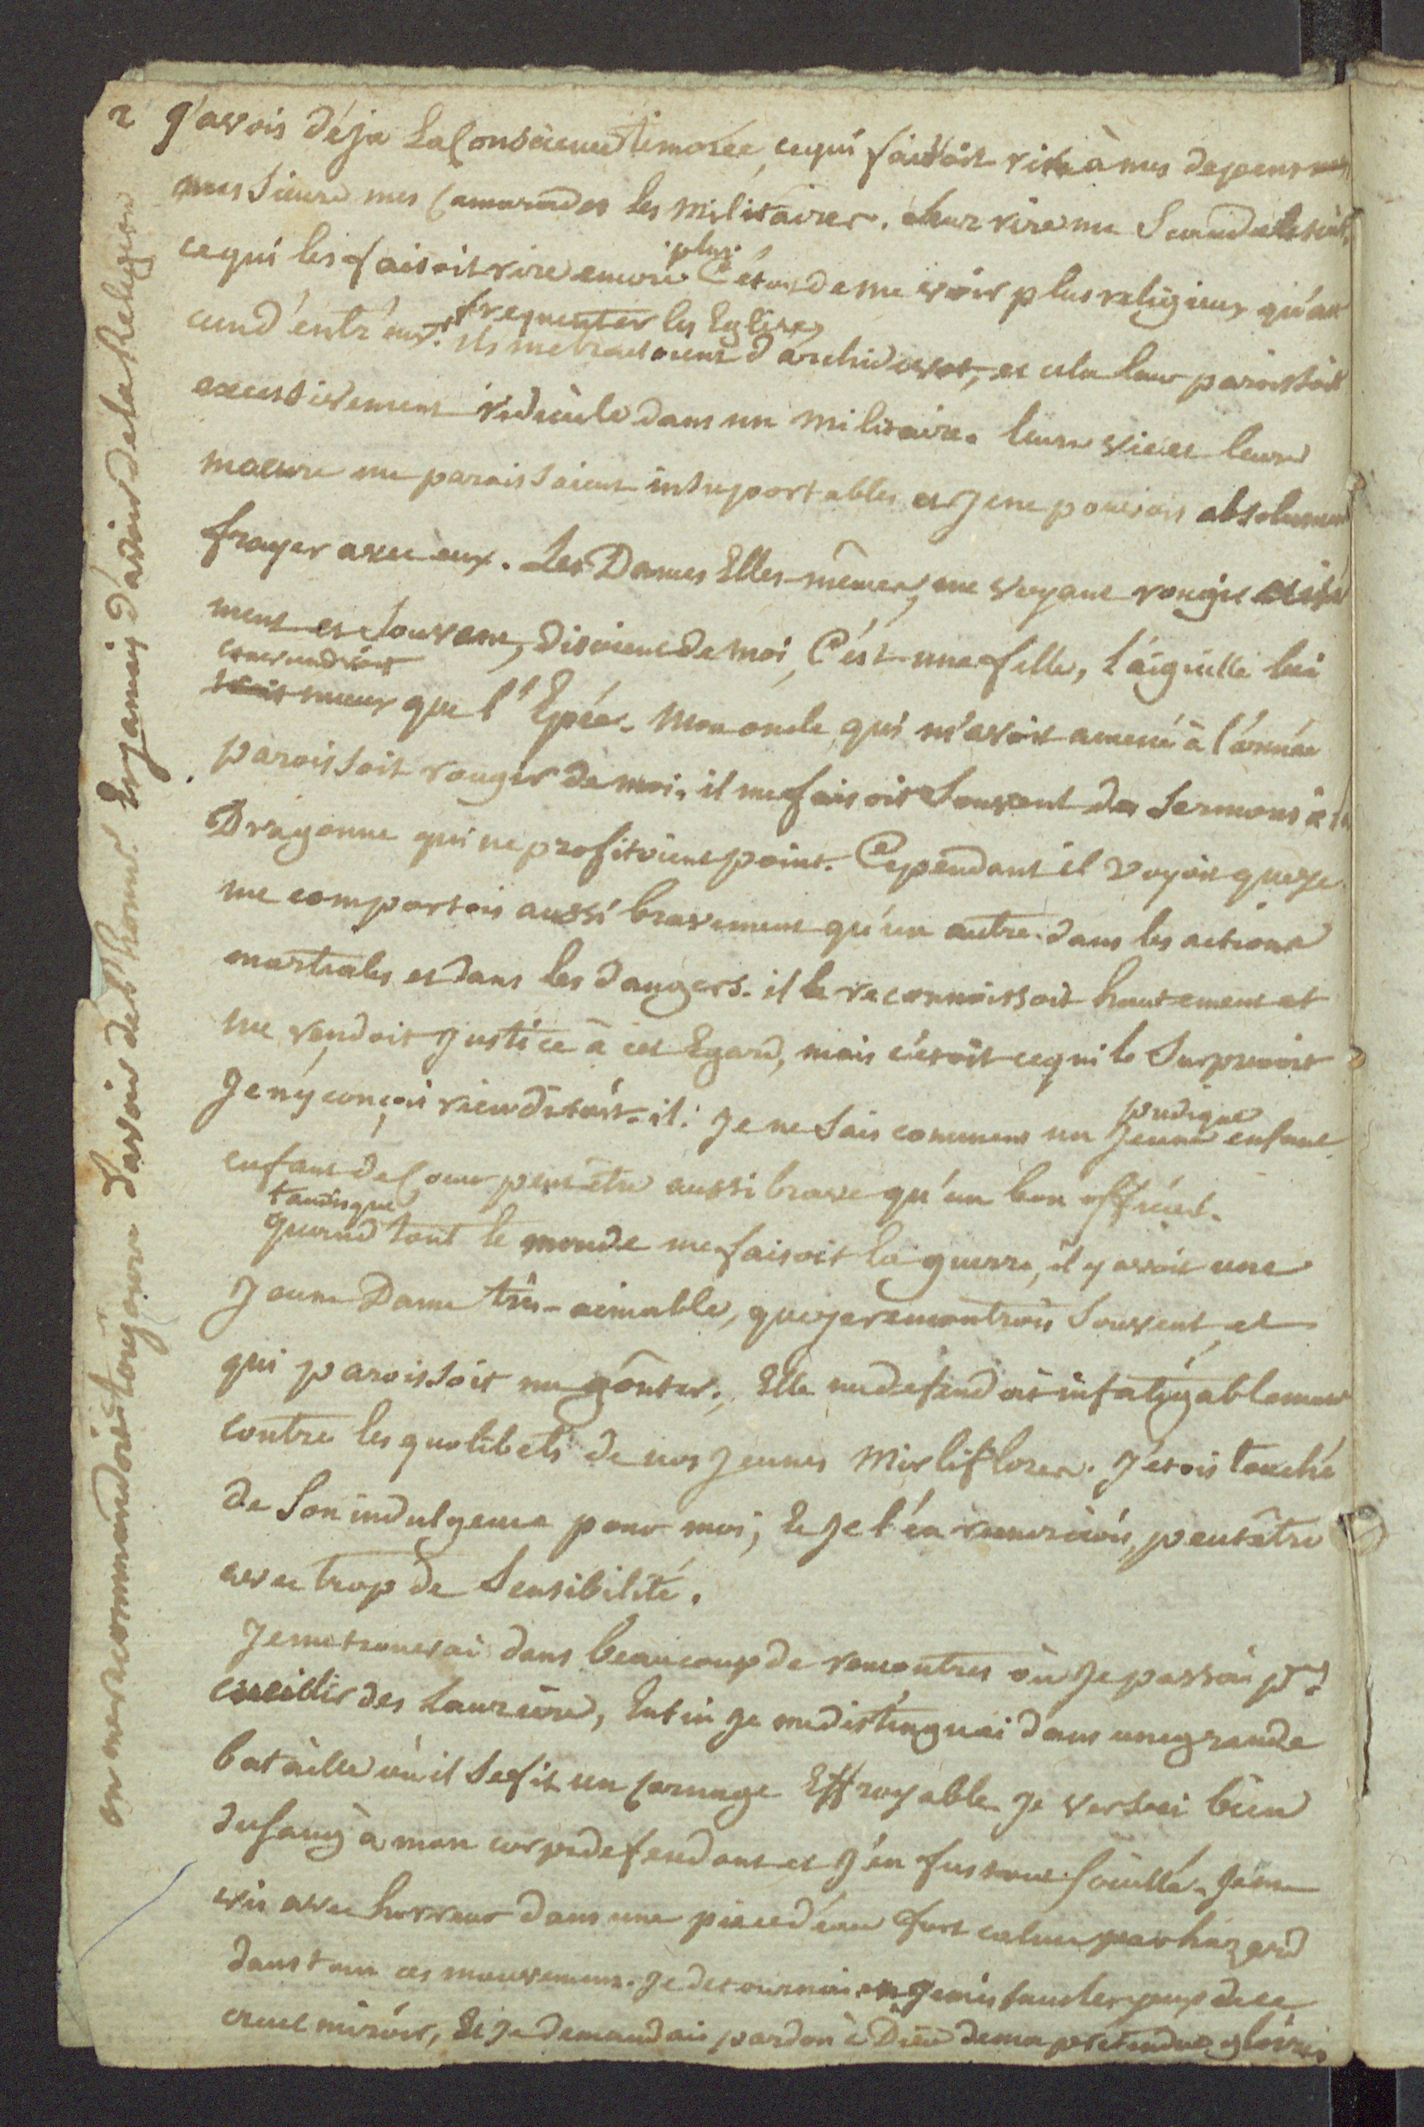 2 J'avois déja La Conscience timorée, cequi faisoit rire à mes depens
messieurs mes Camarades les militaires. Leur rire me Scandalisoit,
plus
cequi les faisoit rire encore C'étoit de me voir plus religieux qu'au
frequenter les Eglises
cun d'entr'eux. ils me traitoient d'archidevot, et cela leur paroissoit
excessivement ridicule dans un militaire. leurs vices leurs
moeurs me paroissoient insuportables et Je ne pouvois absolument
frayer avec eux. Les Dames Elles-mêmes, me voyant rougir aisé
ment et Souvent, disoient de moi, C'est une fille, l'aiguille lui
conviendroit
mieux que l'Epée. Mon oncle qui m'avoit amené à l'armée
paroissoit rougir de moi. il me faisoit Souvent des Sermons à la
Dragonne qui ne profitoient point. Cependant il voyoit que je
me comportois aussi bravement qu'un autre dans les actions
martiales et dans les dangers. il le reconnoissoit hautement et
me rendoit Justice à cet Egard, mais c'etoit cequi le Surprenoit
Je n'y conçois rien disoit-il: Je ne sais comment un
pudique
Jeune enfant
enfant de Coeur peut être aussi brave qu'un bon officier.
tandisque
quand tout le monde me faisoit la guerre, il y avoit une
Jeune Dame très-aimable, queje rencontrois Souvent et
qui paroissoit me goûter. Elle me defendoit infatigablement
contre les quolibets de nos Jeunes Mirliflores. J'étois touché
de Son indulgence pour moi, Et Je l'en remerciois, peutêtre
avec trop de Sensibilité.
Je me trouvai dans beaucoup de rencontres où Je passois pr.
cueillir des Lauriers, Enfin Je me distinguai dans une grande
bataille où il Se fit un Carnage Effroyable Je versai bien
du sang à mon corps defendant et J'en fus tout Souillé. Je me
vis avec horreur dans une piece d'eau fort calme par hazard
dans tous ces mouvemens. Je detournai en gemissant les yeux de ce
cruel miroir, Et Je demandai pardon à Dieu de ma pretendue gloire
on me recommandoit toujours d'avoir des moeurs Et jamais d'avoir de la Religion